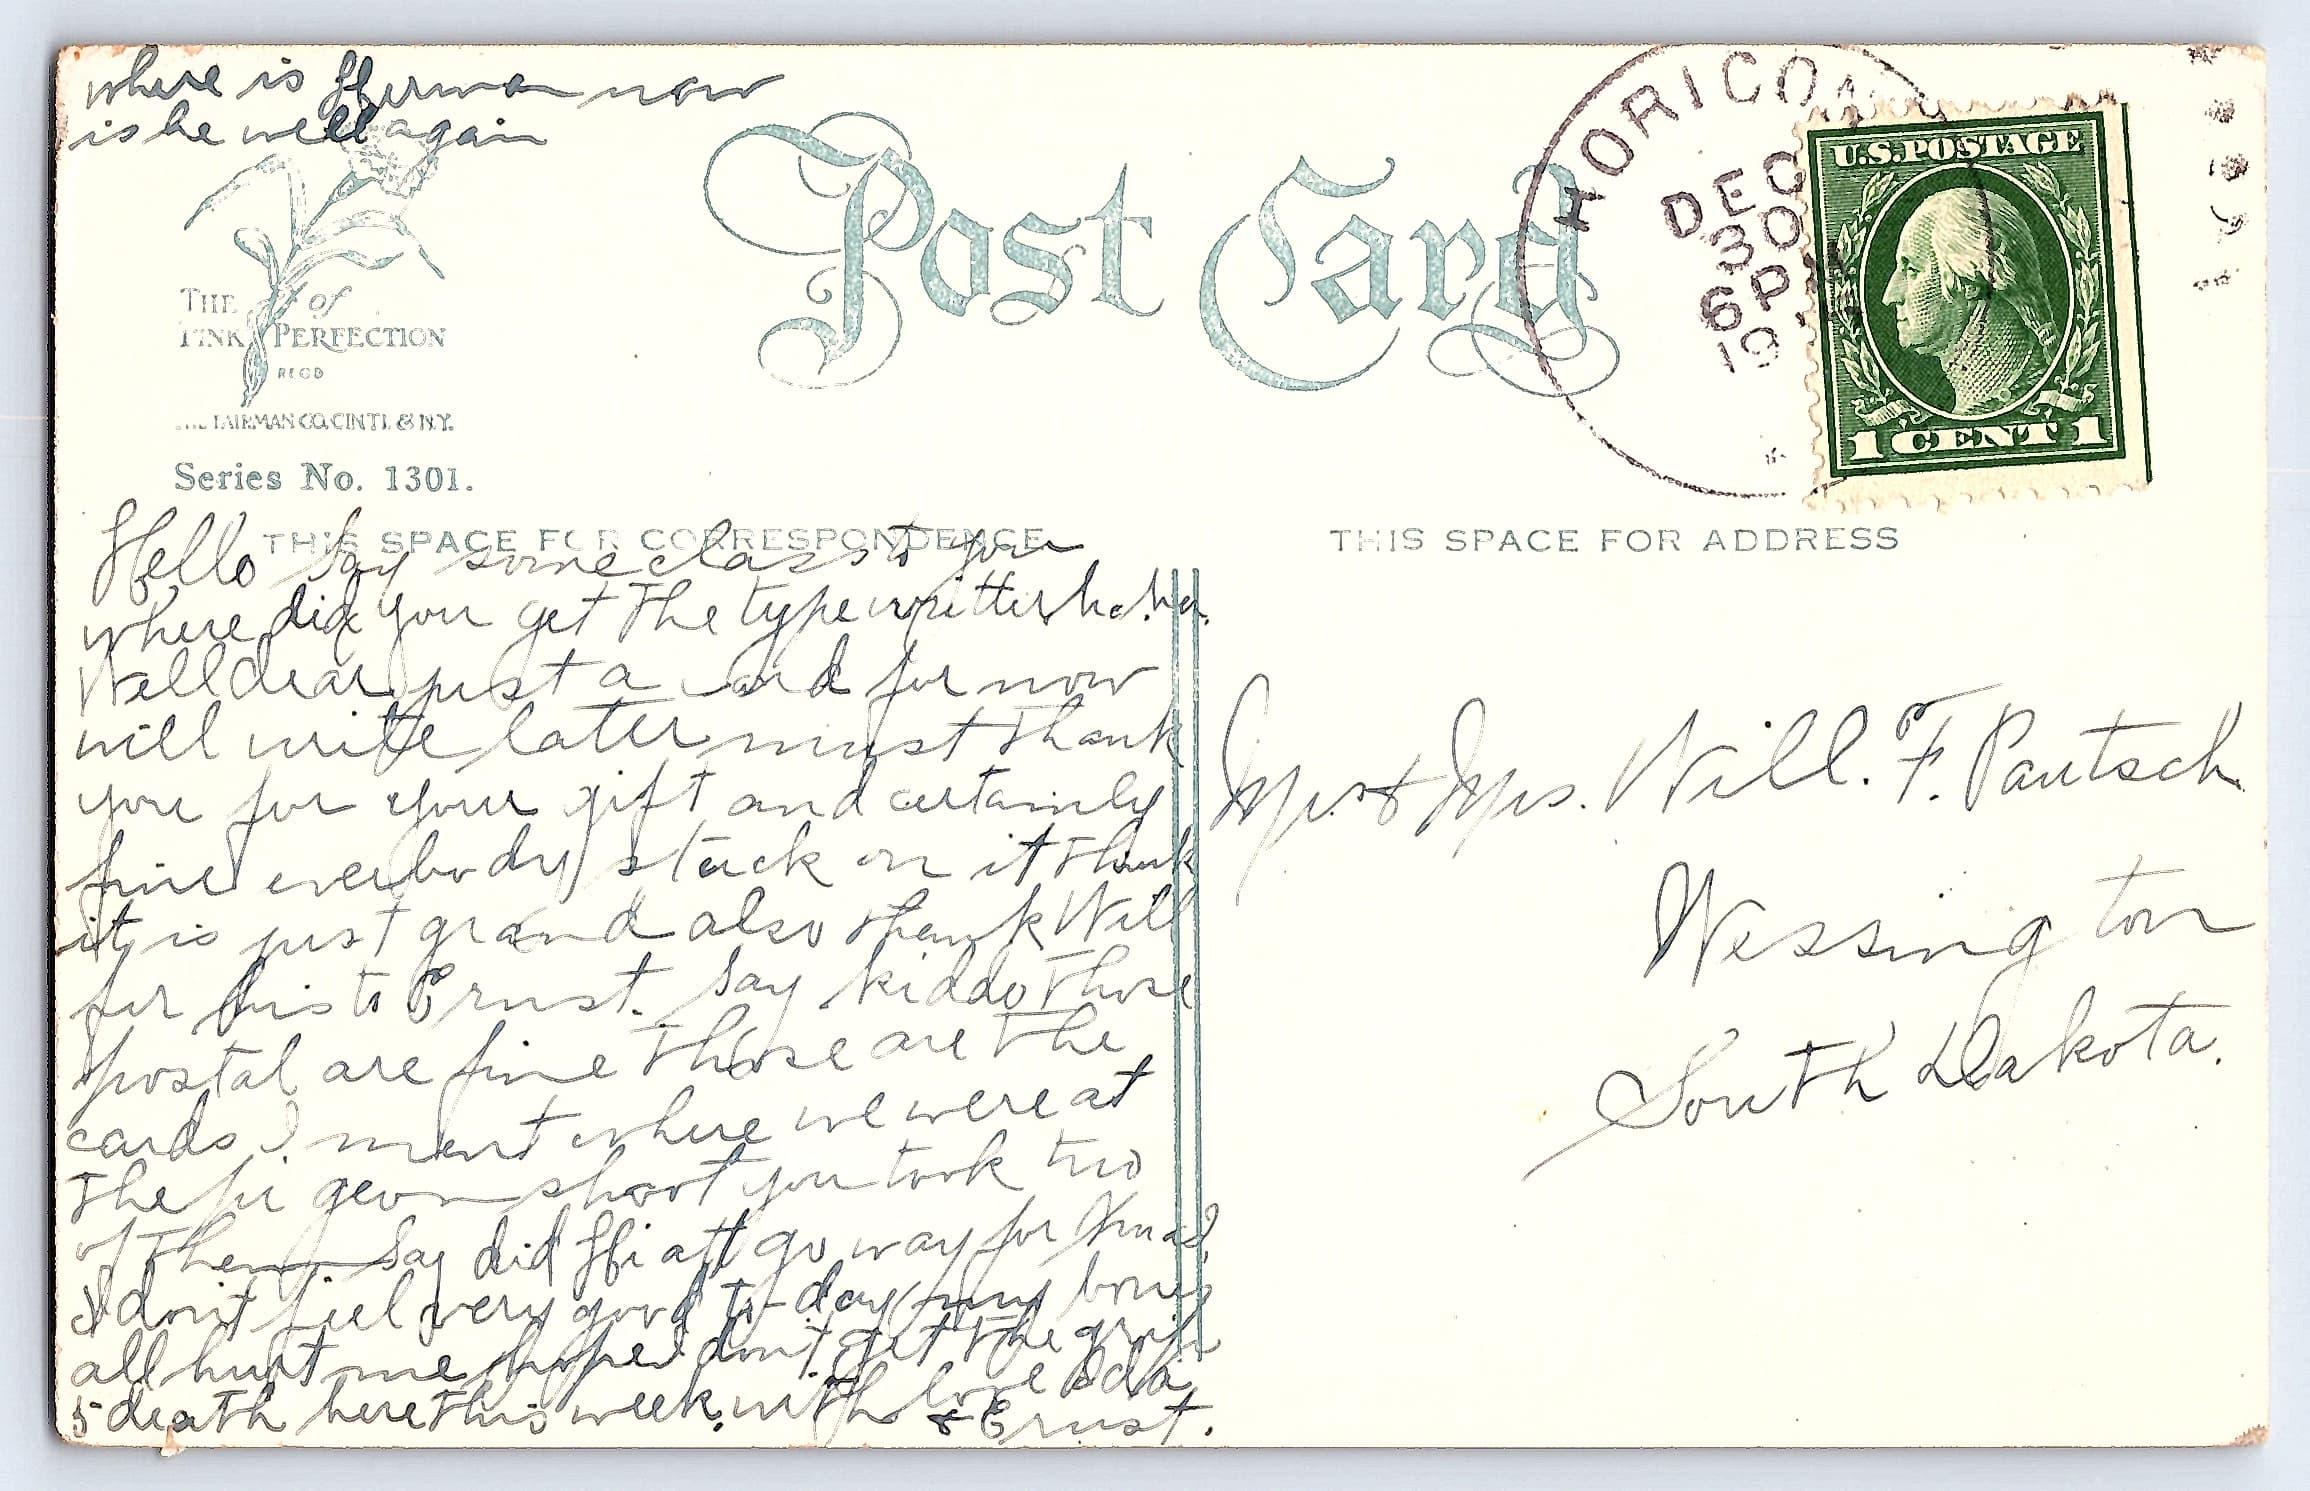 where is Herman now
is he well again
Post Card
THE PINK of PERFECTION
REGD
FAIRMAN CO. CINTI. & N.Y.
Series No. 1301.
HORICON
DEC
30
6 P M
19
U.S. POSTAGE
1 CENT 1
THIS SPACE FOR CORRESPONDENCE
THIS SPACE FOR ADDRESS
Hello Say some class to you
where did you get the typewritter ha. ha.
Well dear just a card for now
will write later must thank
you for your gift and certainly
fine everbody stuck on it think
it is just grand also thank Will
for his to Ernst. Say kiddo those
postal are fine those are the
cards I ment where we were at
the pigeon shoot you took two
of them Say did Hiatt go way for Xmas?
I don't feel very good to-day my bones
all hurt me hope I don't get the grip
5 death here this week. with love Ida
& Ernst.
Mr. & Mrs. Will. F. Pautsch
Wessington
South Dakota.